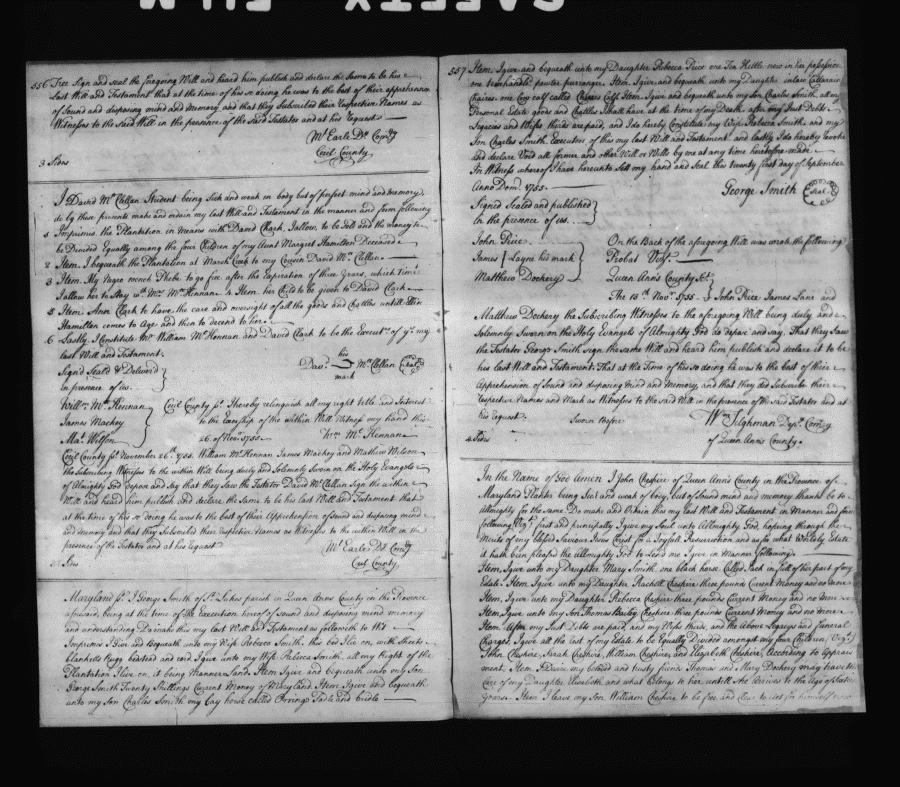 556 Free Sign and seal the foregoing Will and heard him publish and declare the Same to be his
Last Will and Testament that at the time of his so doing he was to the best of their apprehension
of Sound and disposing mind and Memory and that they Subscribed their respective Names as
Witnesses to the Said Will in the presence of the Said Testator and at his Request
Wm Earle Dy Comry
Cecil County
3 Sides
I David McClellan Student being Sick and weak in body but of perfect mind and memory
do by these presents make and ordain my last Will and Testament in the manner and form following
1 Imprimis the Plantation in Means with David Clark, I allow to be Sold and the money to
be Devided Equally among the four Children of my Aunt Margret Hamilton Deceased
2 Item. I bequeath the Plantation at Marsh Creek to my Cousin David McClellan
3 Item. My Negro wench Phebe to go free after the Expiration of three Years, which time
I allow her to Stay wth Mrs McKennan 4 Item. her Child to be given to David Clark
5 Item. Ann Clark to have the care and oversight of all the goods and Chattles untill Ellin
Hamilton comes to Age and then to decend to her
6 Lastly. I Constitute Mr William McKennan and David Clark to be the Executrs of ys my
last Will and Testament.
Sign'd Seal'd & Deliver'd
in presence of us.
his
Davd McClellan Seal
mark
Willm McKennan
James Mackey
Mat. Wilson
Cecil County ss. I hereby relinquish all my right title and Interest
to the Execship of the within Will Witness my hand this
26. of Novr 1755.
Wm McKennan
Cecil County ss. November 26th 1755. William McKennan James Mackey and Mathew Wilson
the Subscribing Witnesses to the within Will being duly and Solemnly Sworn on the Holy Evangels
of Almighty God depose and Say that they Saw the Testator David McClellan Sign the within
Will and heard him publish and declare the Same to be his last Will and Testament that
at the time of his so doing he was to the best of their Apprehension of Sound and disposing mind
and Memory and that they Subscribed their respective Names as Witnesses to the within Will in the
presence of the Testator and at his Request
Wm Earle Dy Comry
Cecil County
Sides
Maryland ss. I George Smith of St Lukes parish in Queen Anns County in the Province
aforesaid, being at the time of the Execution hereof of sound and disposing mind memory
and understanding Do make this my last Will and Testament as followeth to Wit
Imprimis I Give and Bequeath unto my Wife Rebecca Smith, the bed I lie on, with Sheets
blanketts Rugg bedstead and cord I give unto my Wife Rebecca Smith, all my Right of the
Plantation I live on, it being Mannor Land. Item I give and bequeath unto my Son
George Smith Twenty Shillings Current Money of Maryland Item. I give and bequeath
unto my Son Charles Smith my Bay horse called Saddle and bridle
557 Item. I give and bequeath unto my Daughter Rebecca Price one Tea Kettle now in her possession
one pewter purranger. Item. I give and bequeath unto my Daughter in law
one Cow calf called Calf. Item. I give and bequeath unto my Son Charles Smith, all my
Personal Estate goods and Chattles I Shall have at the time of my Death, after my Just Debts
Legacies and Wifes thirds are paid, and I do hereby Constitute my Wife Rebecca Smith, and my
Son Charles Smith, Executors of this my last Will and Testament. and lastly I do hereby revoke
and declare Void all former and other Will or Wills by me at any time heretofore made
In Witness whereof I have hereunto Sett my hand and Seal this twenty first day of September
Anno Dom. 1755.
George Smith Seal
Signed Sealed and published
In the presence of us.
John Price
James Layne his mark
Matthew Dockery
On the Back of the aforegoing Will was wrote the following
Probat Vizt
Queen Anns County Sct
The 13th Novr 1755. John Price James Lane and
Matthew Dockery the Subscribing Witnesses to the aforegoing Will being duly and
Solemnly Sworn on the Holy Evangels of Almighty God do depose and say. That they Saw
the Testator George Smith sign the same Will and heard him publish and declare it to be
his last Will and Testament. That at the Time of his so doing he was to the best of their
Apprehension of Sound and disposing mind and Memory, and that they did Subscribe their
respective Names and Mark as Witnesses to the said Will in the presence of the said Testator and at
his request.
Sworn before
Wm Tilghman Depy Comry
of Queen Anns County.
4 Sides
In the Name of God Amen I John Cheshire of Queen Anns County in the Province of
Maryland Planter being Sick and weak of body, but of Sound mind and memory thanks be to
Almighty for the same Do make and Ordain this my Last Will and Testament in Manner and form
following Vizt first and principally I give my Soul unto Allmighty God, hopeing through the
Merits of my blessed Saviour Jesus Christ for a Joyfull Resurrection and as for what Worldly Estate
it hath been pleased the Allmighty God to Lend me I give in Manner following
Item. I give unto my Daughter Mary Smith, one black horse Called Jack in full of her part of my
Estate. Item. I give unto my Daughter Rachell Cheshire three pounds Current Money and no more
Item, I give unto my Daughter Rebecca Cheshire three pounds Current Money and no more
Item I give unto my Son Thomas Bailey Cheshire three pounds Current Money and no more
Item. After my Just Debts are paid, and my Wifes thirds, and the Above Legacys and funeral
Charges. I give all the rest of my Estate to be Equally Divided amongst my four Children, Vizt
John Cheshire, Sarah Cheshire, William Cheshire, and Elizabeth Cheshire, According to Appraisement.
Item. I Desire my beloved and trusty friends Thomas and Mary Dockery may have the
care of my Daughter Elizabeth and what belongs to her untill She Arrives to the Age of Sixteen
Years. Item I leave my Son William Cheshire to be free and Clear to act for himself